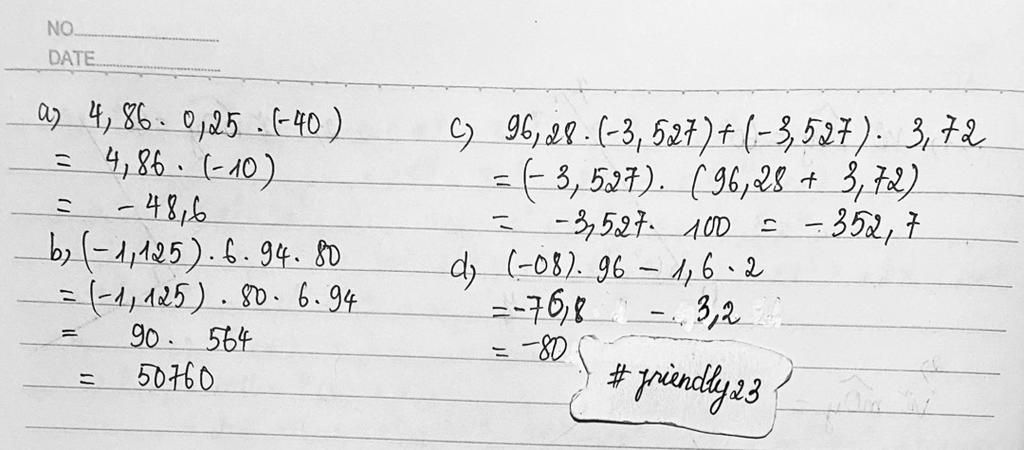 NO
DATE
a) 4,86 . 0,25 . (-40)
= 4,86 . (-10)
= -48,6
b) (-1,125) . 6 . 94 . 80
= (-1,125) . 80 . 6 . 94
= 90 . 564
= 50760
c) 96,28 . (-3,527) + (-3,527) . 3,72
= (-3,527) . (96,28 + 3,72)
= -3,527 . 100 = -352,7
d) (-08) . 96 - 1,6 . 2
= -76,8 - 3,2
= -80
# friendly23